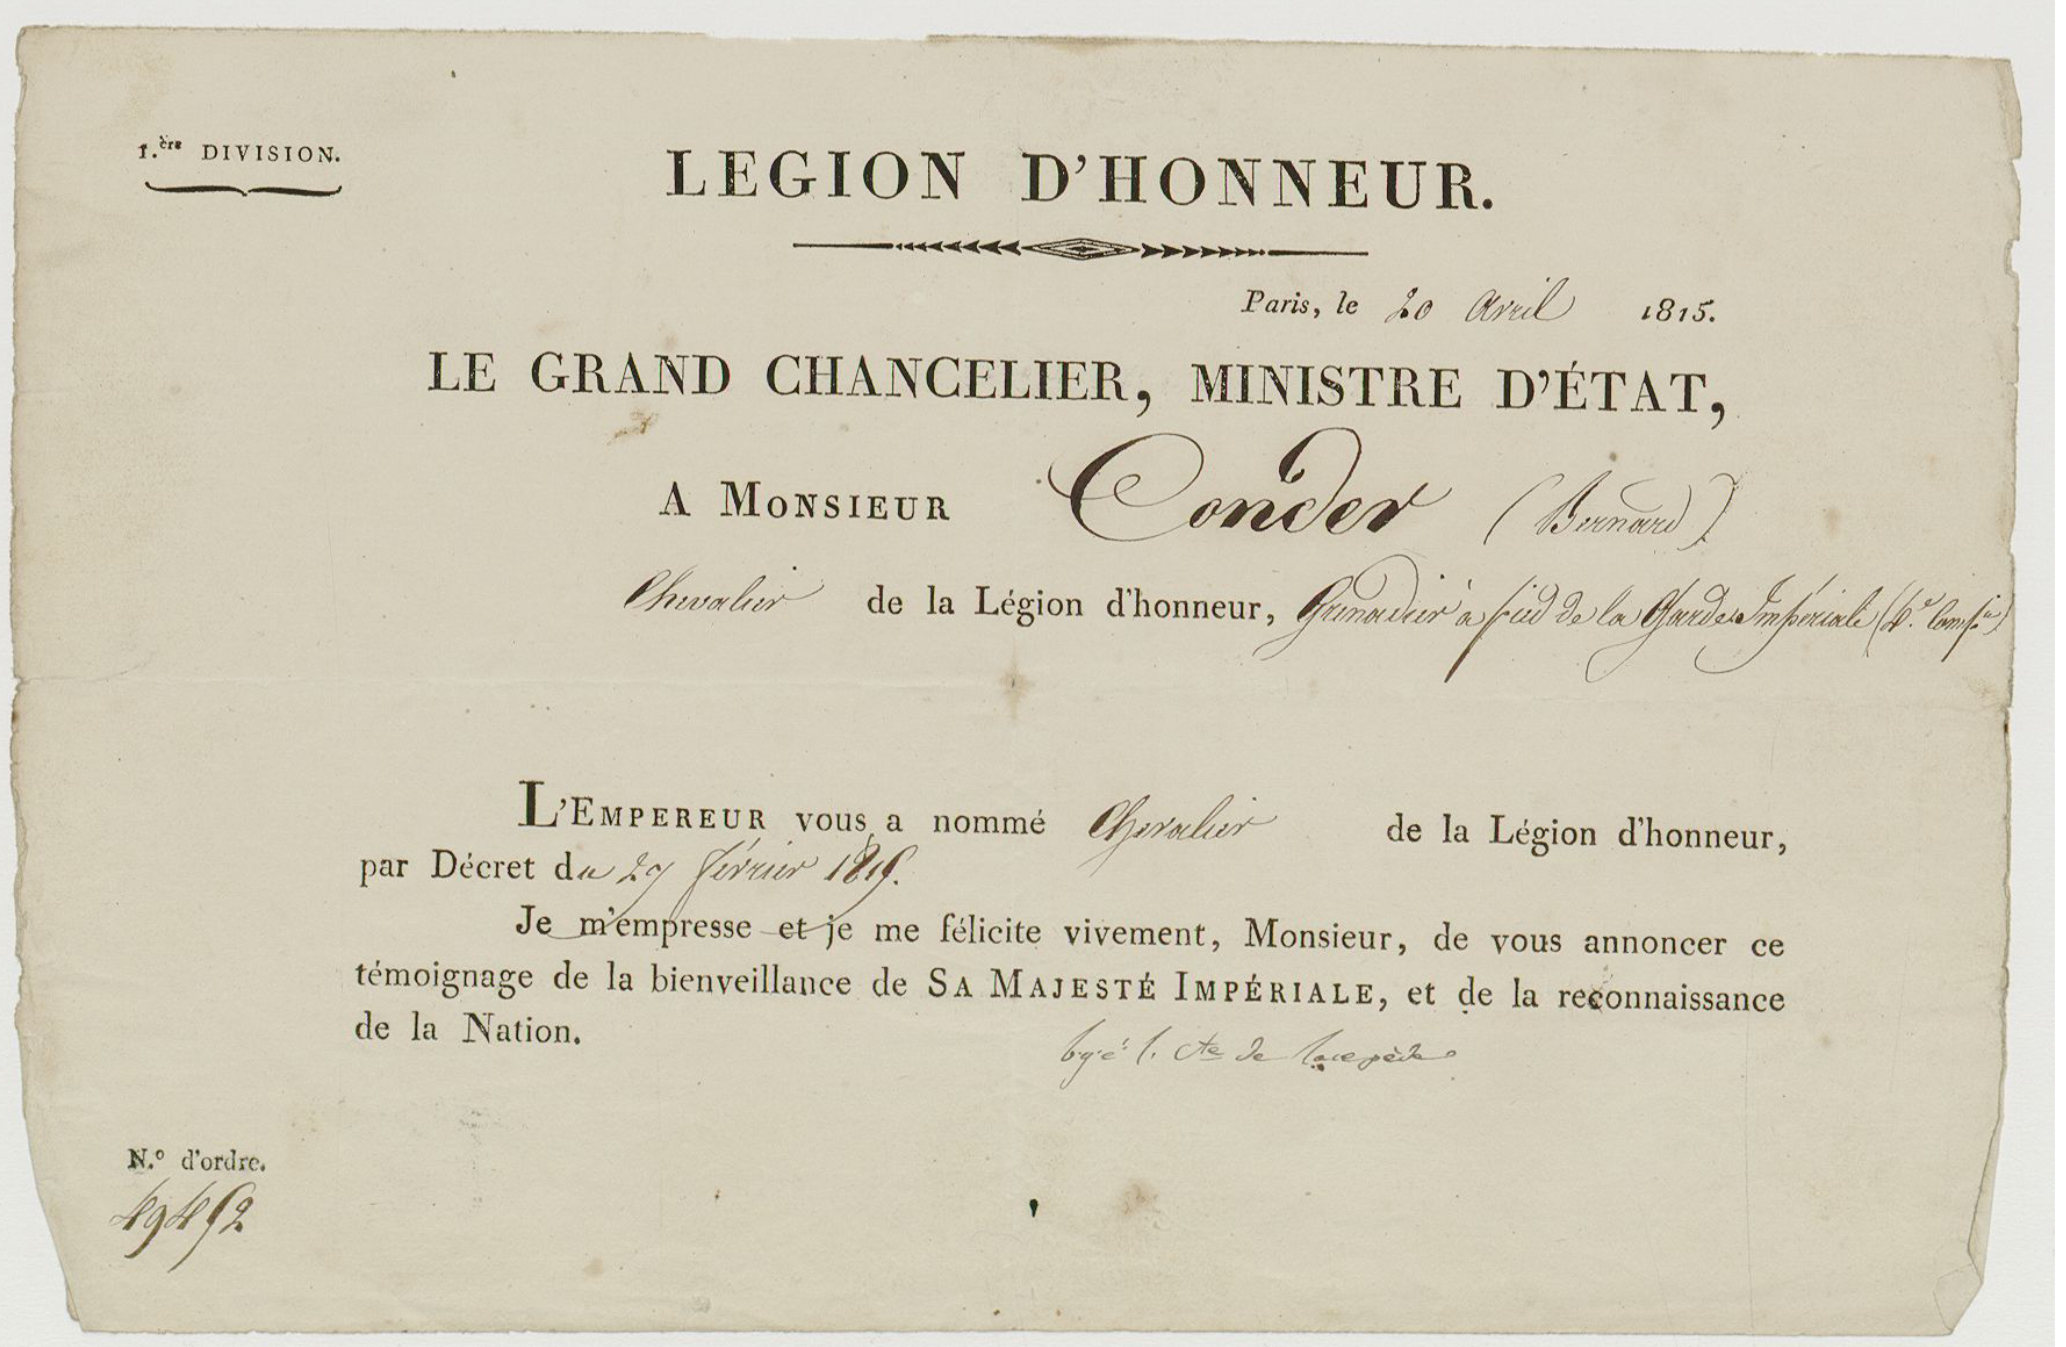 1.ère DIVISION.
LEGION D'HONNEUR.
Paris, le 20 Avril 1815.
LE GRAND CHANCELIER, MINISTRE D'ÉTAT,
A MONSIEUR Conder (Bernard)
Chevalier de la Légion d'honneur, Grenadier à pied de la Garde Impériale (4.e Comp.ie)
L'EMPEREUR vous a nommé Chevalier de la Légion d'honneur,
par Décret du 27 février 1815.
Je m'empresse et je me félicite vivement, Monsieur, de vous annoncer ce
témoignage de la bienveillance de SA MAJESTÉ IMPÉRIALE, et de la reconnaissance
de la Nation.
de Lacepède
N.o d'ordre.
49452